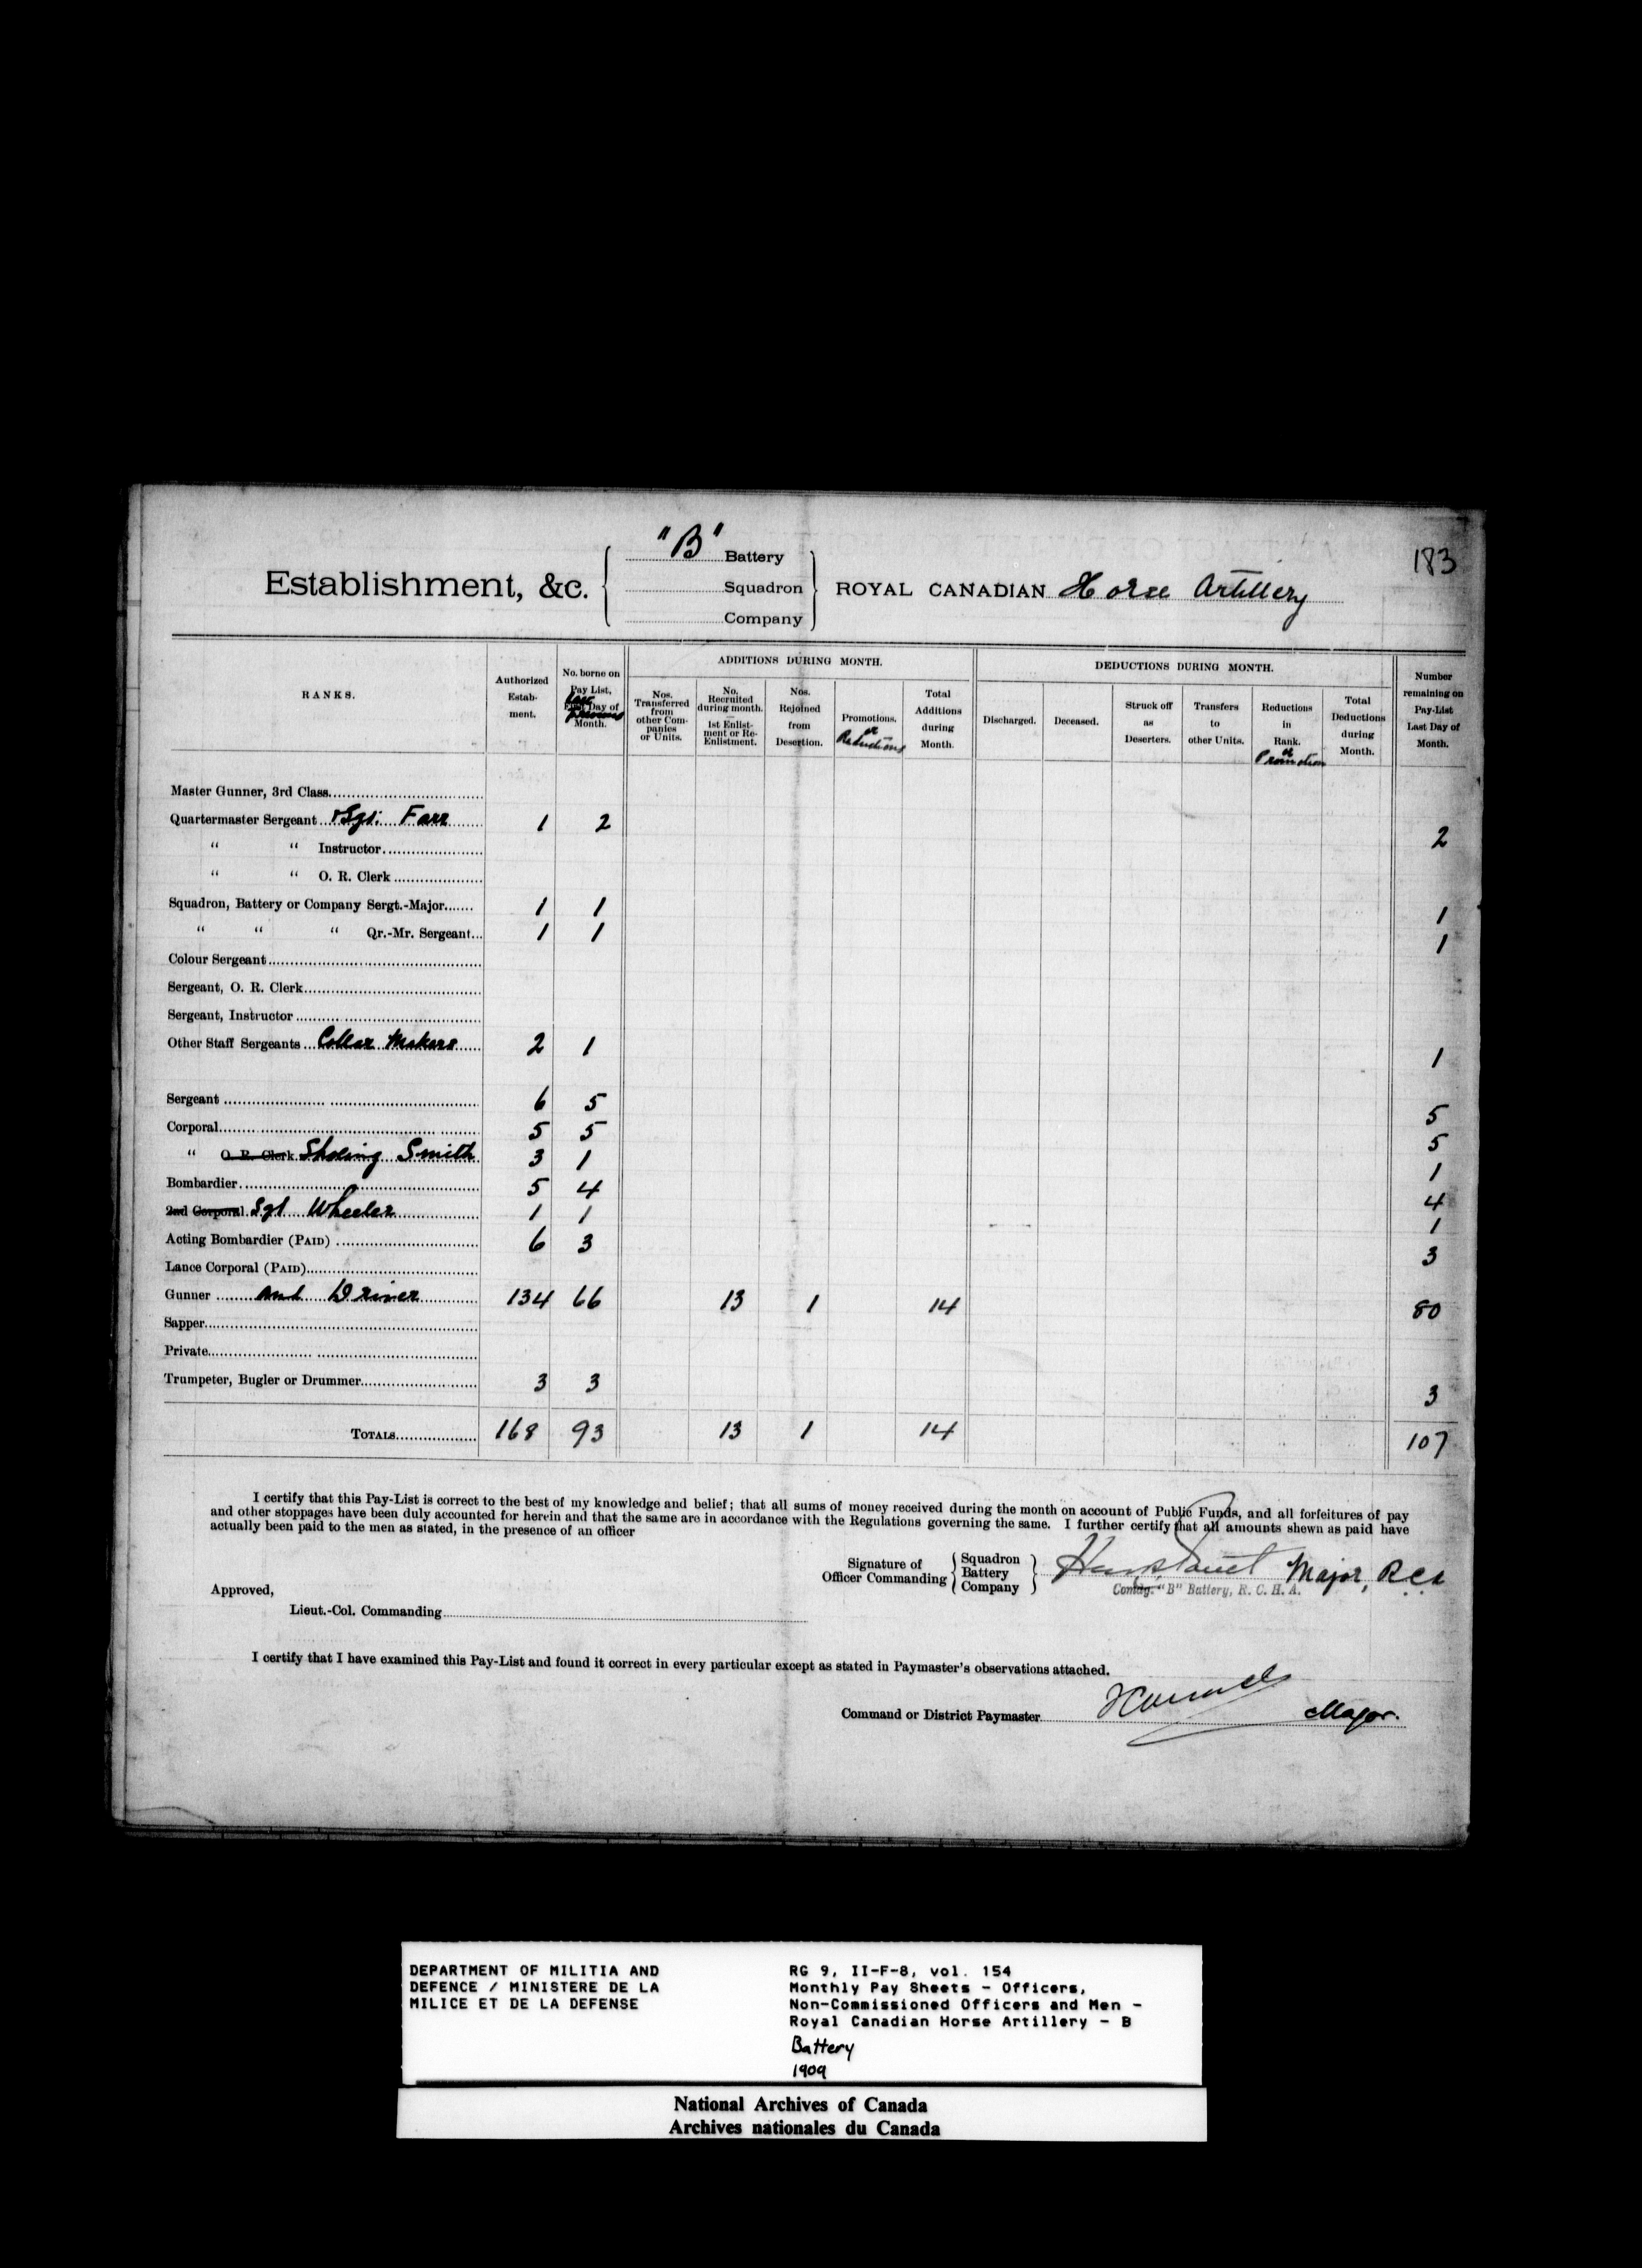 183
"B" Battery
Establishment, &c. Squadron ROYAL CANADIAN Horse Artillery
Company
RANKS.
Authorized Estab- ment.
No. borne on Pay List, Last Day of previous Month.
ADDITIONS DURING MONTH.
Nos. Transferred from other Com- panies or Units.
No. Recruited during month. — 1st Enlist- ment or Re- Enlistment.
Nos. Rejoined from Desertion.
Promotions. or Reductions
Total Additions during Month.
DEDUCTIONS DURING MONTH.
Discharged.
Deceased.
Struck off as Deserters.
Transfers to other Units.
Reductions in Rank. or Promotion
Total Deductions during Month.
Number remaining on Pay-List Last Day of Month.
Master Gunner, 3rd Class
Quartermaster Sergeant Sgt. Farr 1 2 2
“ “ Instructor
“ “ O. R. Clerk
Squadron, Battery or Company Sergt.-Major 1 1 1
“ “ “ Qr.-Mr. Sergeant 1 1 1
Colour Sergeant
Sergeant, O. R. Clerk
Sergeant, Instructor
Other Staff Sergeants Collar Makers 2 1 1
Sergeant 6 5 5
Corporal 5 5 5
“ O. R. Clerk Shoeing Smith 3 1 1
Bombardier 5 4 4
2nd Corporal Sgt Wheeler 1 1 1
Acting Bombardier (PAID) 6 3 3
Lance Corporal (PAID)
Gunner and Driver 134 66 13 1 14 80
Sapper
Private
Trumpeter, Bugler or Drummer 3 3 3
TOTALS 168 93 13 1 14 107
I certify that this Pay-List is correct to the best of my knowledge and belief; that all sums of money received during the month on account of Public Funds, and all forfeitures of pay
and other stoppages have been duly accounted for herein and that the same are in accordance with the Regulations governing the same. I further certify that all amounts shewn as paid have
actually been paid to the men as stated, in the presence of an officer
Signature of Officer Commanding Squadron Battery Company Major, RCA
Comdg. "B" Battery, R. C. H. A.
Approved,
Lieut.-Col. Commanding
I certify that I have examined this Pay-List and found it correct in every particular except as stated in Paymaster's observations attached.
Command or District Paymaster Major.
DEPARTMENT OF MILITIA AND
DEFENCE / MINISTERE DE LA
MILICE ET DE LA DEFENSE
RG 9, II-F-8, vol. 154
Monthly Pay Sheets - Officers,
Non-Commissioned Officers and Men -
Royal Canadian Horse Artillery - B
Battery
1909
National Archives of Canada
Archives nationales du Canada